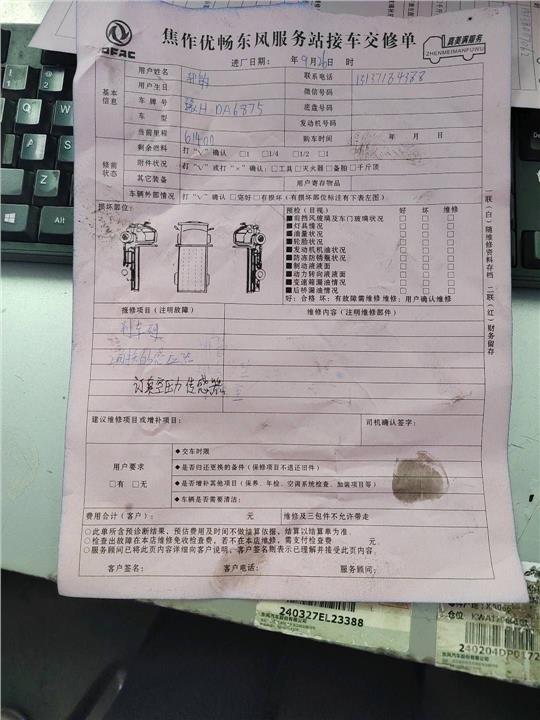 DFAC
焦作优畅东风服务站接车交修单
真美满服务
ZHENMEIMANFUWU
进厂日期: 年 9月26日 时
基本信息
用户姓名
联系电话
用户生日
微信号码
车牌号 豫H DA6875
底盘号码
车型
发动机号码
修前状态
当前里程 61400
购车时间 年 月 日
剩余燃料 打“√”确认 □1 □1/4 □1/2 □1
附件状况 打“√”或打“×”确认: □工具 □灭火器 □备胎 □千斤顶
其它装备
用户寄存物品
车辆外部情况 打“√”确认 □完好 □有损坏(有损坏部位标注有下表左图)
损坏部位:
预检(目视) 好 坏 维修
■前挡风玻璃及车门玻璃状况 □ □ □
■灯具情况 □ □ □
■油量状况 □ □ □
■轮胎状况 □ □ □
■发动机机油状况 □ □ □
■防冻防锈瓶状况 □ □ □
■制动液液面 □ □ □
■动力转向液液面 □ □ □
■变速箱漏油情况 □ □ □
■后桥漏油情况 □ □ □
好: 合格 坏: 有故障需维修 维修: 用户确认维修
报修项目(注明故障)
维修内容(注明维修部件)
刹车硬
订真空压力传感器
建议维修项目或增补项目:
司机确认签字:
用户要求
□有 □无
◆交车时限
◆是否归还更换的备件(保修项目不退还旧件)
◆是否增补其他项目(保养、年检、空调系统检查、加装项目等)
◆车辆是否需要清洁:
费用合计(客户): 元
维修及三包件不允许带走
○此单所含预诊断结果、预估费用及时间不做结算依据, 结算以结算单为准.
○检查出故障在本店维修免收检查费, 若不在本店维修, 需支付检查费 元.
○服务顾问已将此页内容详细向客户说明。客户签名则表示已理解并接受此页内容。
客户签名: 客户电话: 服务顾问:
一联(白)随维修资料存档 二联(红)财务留存
Alt
东风汽车股份有限公司
240327EL23388
仓位
240204DP0172
东风汽车股份有限公司